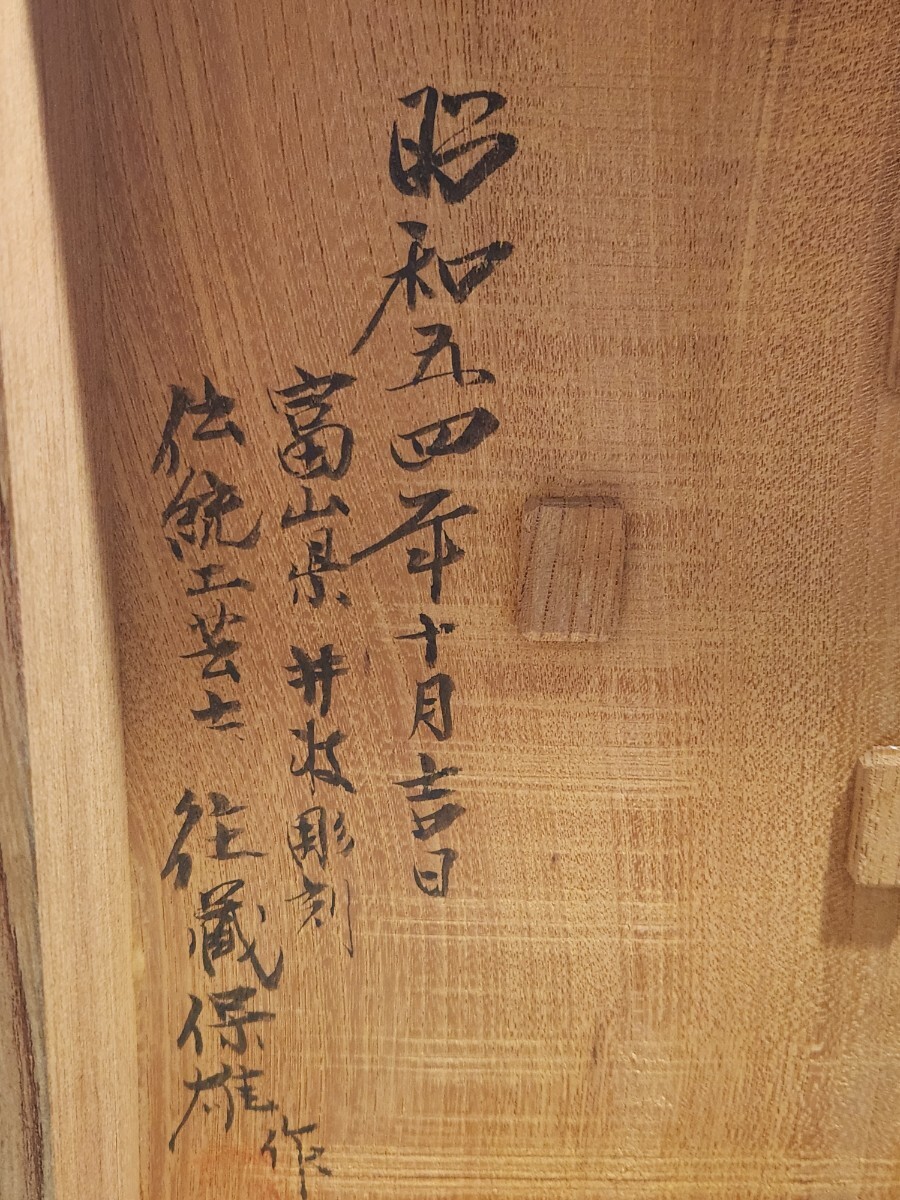 昭和五四年十月吉日
富山県 井波彫刻
伝統工芸士 往蔵保雄 作